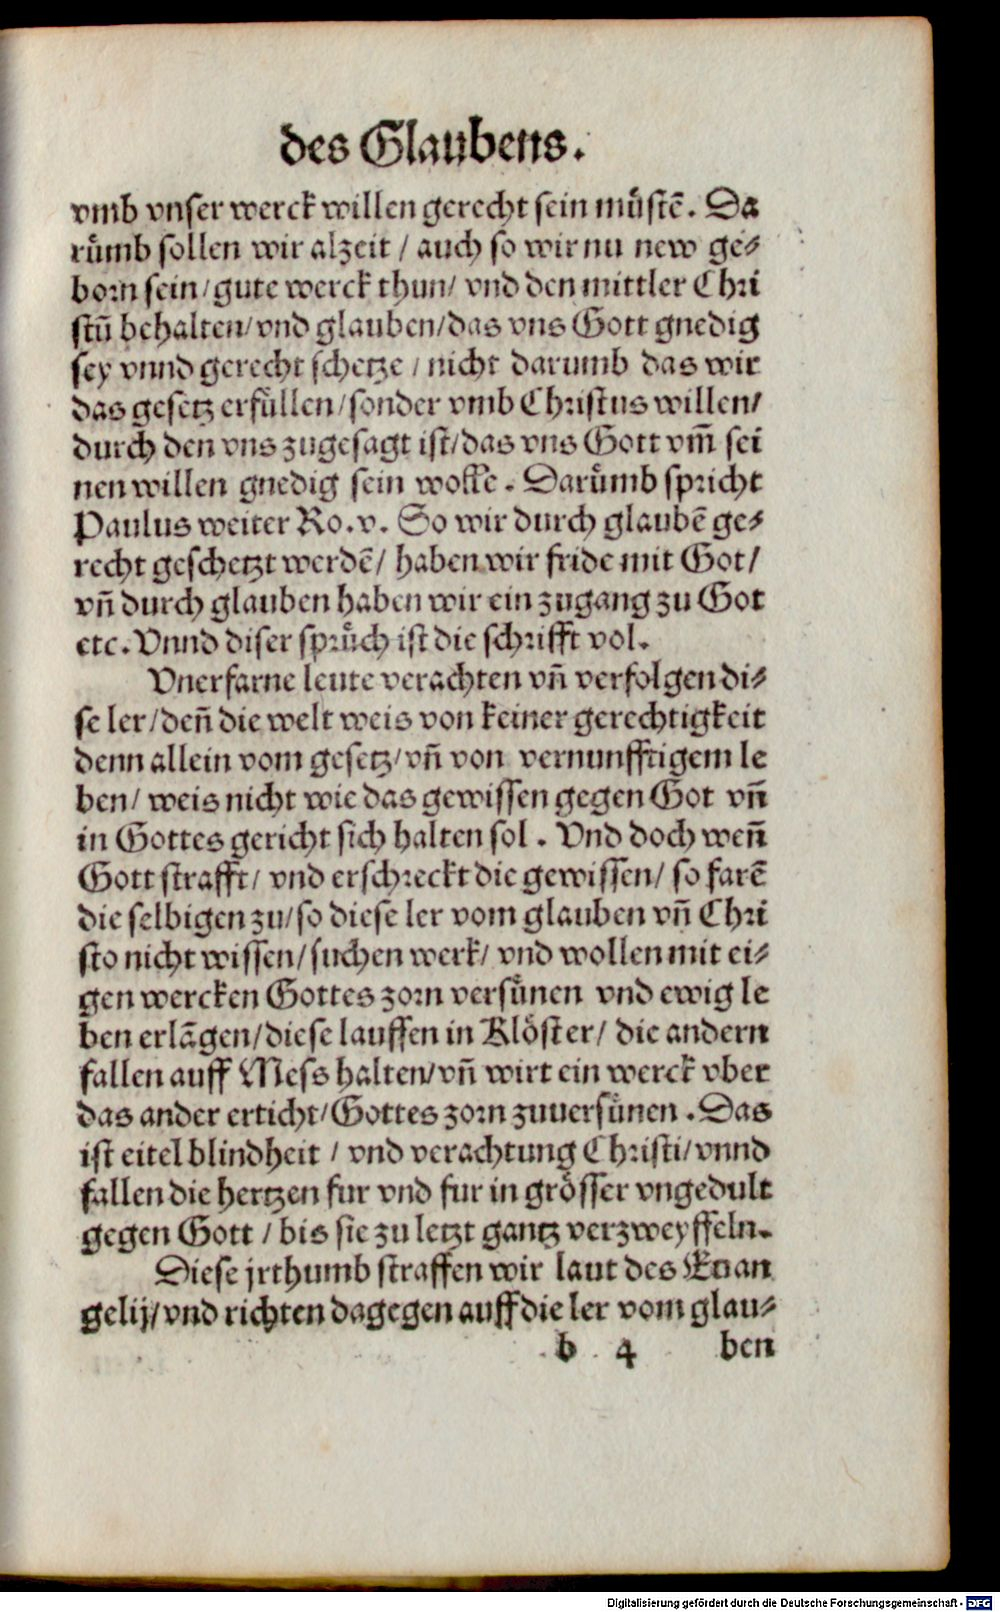 des Glaubens.
vmb vnser werck willen gerecht sein muͤstē. Da
ruͤmb sollen wir alzeit / auch so wir nu new ge⸗
born sein / gute werck thun / vnd den mittler Chri
stū behalten / vnd glauben / das vns Gott gnedig
sey vnnd gerecht schetze / nicht darumb das wir
das gesetz erfuͤllen / sonder vmb Christus willen /
durch den vns zugesagt ist / das vns Gott vm̄ sei
nen willen gnedig sein wolle. Daruͤmb spricht
Paulus weiter Ro. v. So wir durch glaubē ge⸗
recht geschetzt werdē / haben wir fride mit Got /
vn̄ durch glauben haben wir ein zugang zu Got
etc. Vnnd diser spruͤch ist die schrifft vol.
Vnerfarne leute verachten vn̄ verfolgen di⸗
se ler / den̄ die welt weis von keiner gerechtigkeit
denn allein vom gesetz / vn̄ von vernunfftigem le
ben / weis nicht wie das gewissen gegen Got vn̄
in Gottes gericht sich halten sol. Vnd doch wen̄
Gott strafft / vnd erschreckt die gewissen / so farē
die selbigen zu / so diese ler vom glauben vn̄ Chri
sto nicht wissen / suchen werk / vnd wollen mit ei⸗
gen wercken Gottes zorn versuͤnen vnd ewig le
ben erlāgen / diese lauffen in Kloͤster / die andern
fallen auff Mess halten / vn̄ wirt ein werck vber
das ander erticht / Gottes zorn zuuersuͤnen. Das
ist eitel blindheit / vnd verachtung Christi / vnnd
fallen die hertzen fur vnd fur in groͤsser vngedult
gegen Gott / bis sie zu letzt gantz verzweyffeln.
Diese jrthumb straffen wir laut des Euan
gelij / vnd richten dagegen auff die ler vom glau⸗
b 4 ben
Digitalisierung gefördert durch die Deutsche Forschungsgemeinschaft - DFG